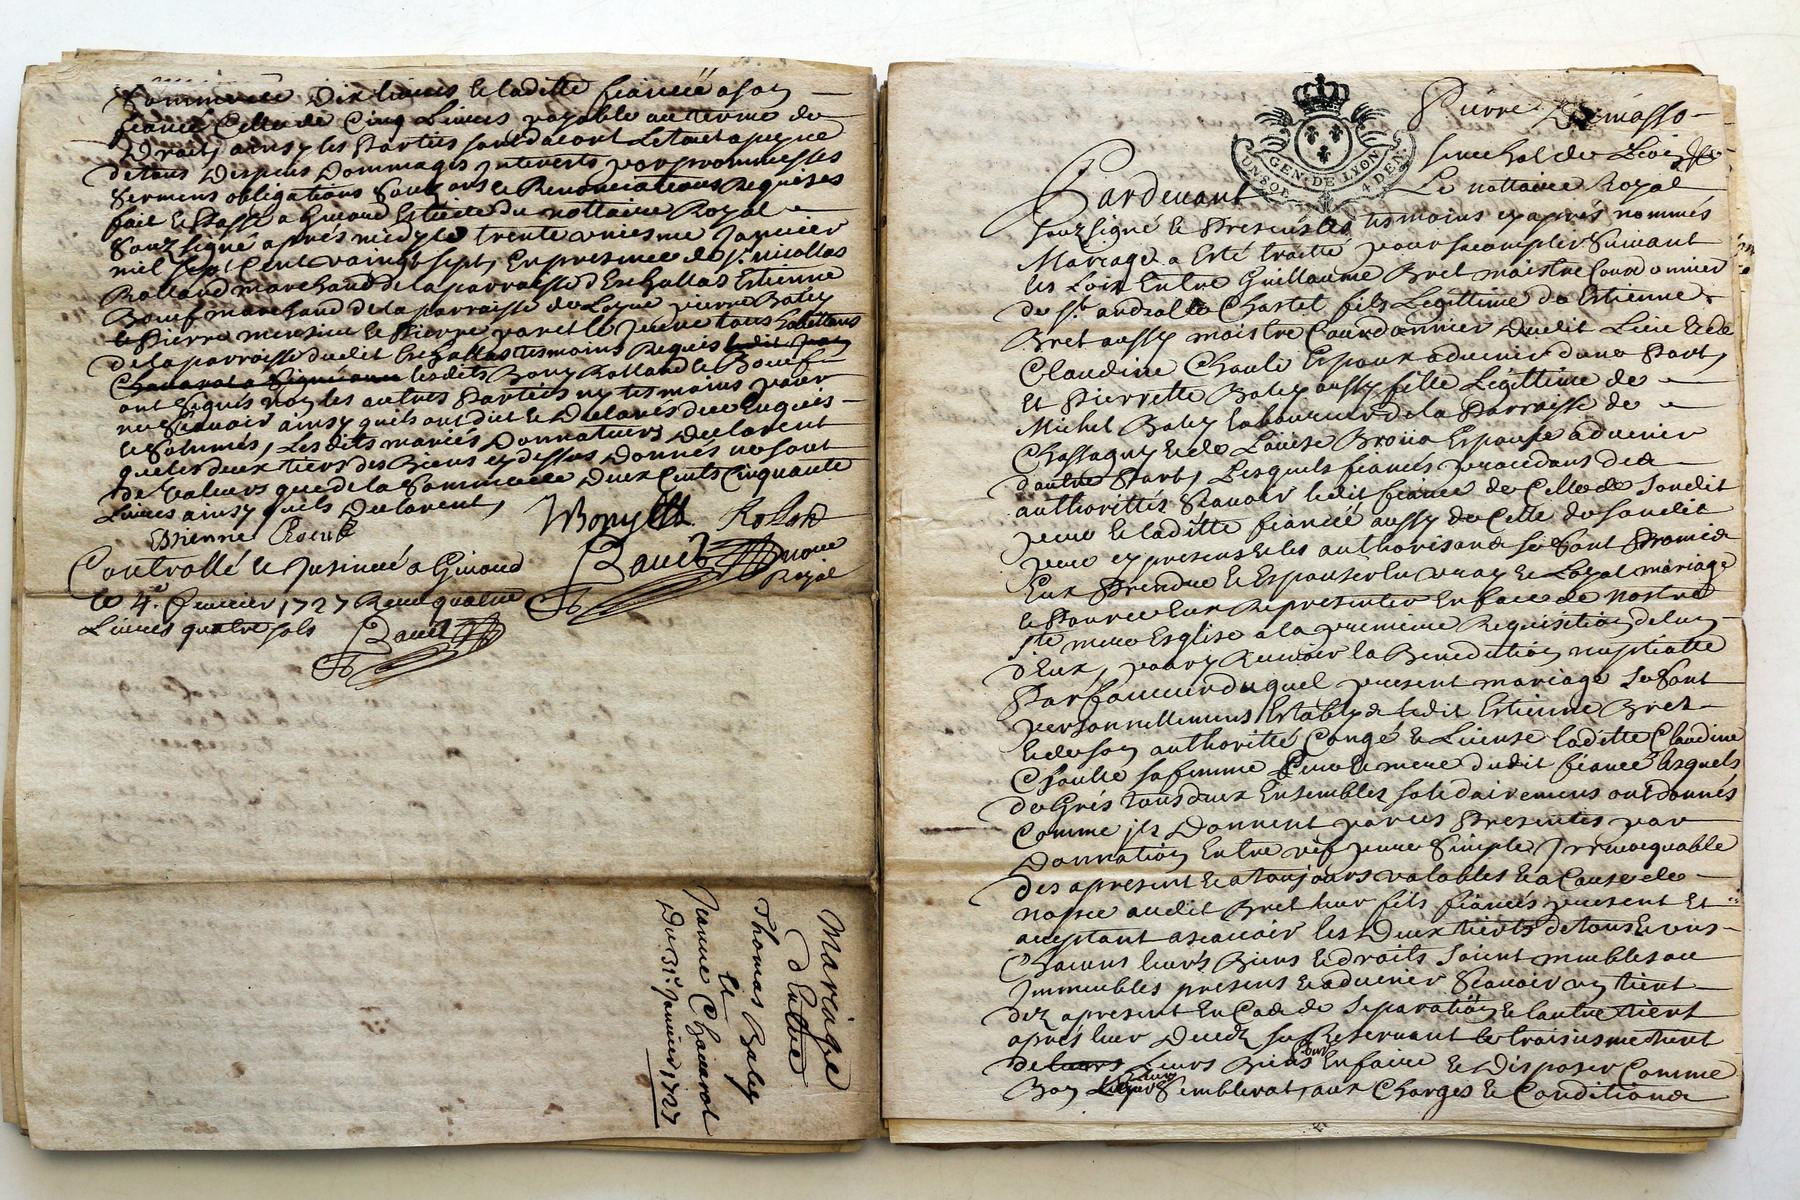 Somme de Dix livres & laditte fiancée a son
fiancé Celle de Cinq Livres payable au terme de
Droit, ainsy les Parties sont dacort Le tout a peyne
de tous Despens Dommages Interests par prommesses
Sermens obligations Soumissions & Renonciations Requises
fait & Passé a Givord Estude du nottaire Royal
Souzsigné aprés midy le trente uniesme Janvier
mil sept Cent vaingt sept, En presence de Sr. nicollas
Rolland marchand de la parroisse d'Eschallas Estienne
Boeuf marchand de la parroisse de Loyre pierre Baley
& Pierre & Pierre le Jeune tous habittans
de la parroisse dudit Eschallas tesmoins Requis ledit
Chanavat a Signé avec lesdits Bony Rolland & Boeuf
ont Signés non les autres Parties ny tesmoins pour
ne Scavoir ainsy quils ont dit & Declarés de ce Enquis
& Sommés, Les dits mariés Donnateurs Declarent
que les deux tiers des Biens cy dessus Donnés ne sont
de Valleurs que de la Somme de Deux Cents Cinquante
Livres ainsy quils Declarent,
Bony Roland
Etienne Boeuf
Controllé & Insinué a Givord
le 4e. fevrier 1727 Receu quattre
Livres quattre sols
Royal
Mariage
d'Entre
Thomas Baley
Et
Jeanne Chanavat
Du 31e. Janvier 1727
Pierre
senechal de Lion
GEN. DE LYON
UN SOL 4 DEN.
Pardevant Le nottaire Royal
souzsigné & Presents les tesmoins cy aprés nommés
Mariage a Esté traitté pour sacomplir Suivant
les Loix Entre Guillaume Bret maistre Courdonnier
de St. andeol le Chastel fils Legittime de Estienne
Bret aussy maistre Courdonnier dudit Lieu & de
Claudine Espoux advenir d'une Part,
Et Pierrette Baley aussy fille Legittime de
Michel Baley Laboureur de la Parroisse de
Chassagny & de Louise Espouse advenir
d'autre Part, Lesquels fiancés procedans des
authorittés Scavoir ledit fiancé de Celle de Sondit
pere & laditte fiancée aussy de Celle de Sondit
pere cy presents & les authorisans se Sont Promis
Eux Prendre & Espouser En vray & Loyal mariage
& Pour ce Eux Representer En face de nostre
Ste mere Esglise a la premiere Requisition de lun
d'Eux, pour y Recevoir la Benediction nuptialle
Par faveur duquel present mariage Se Sont
personnellement Establys ledit Estienne Bret
& de son authoritté Congé & License laditte Claudine
sa femme Pere & mere dudit fiancé Lesquels
de Grés tous deux Ensembles solidairement ont donnés
Comme ils Donnent par ces Presentes par
Donnation Entre vifs pure Simple Irrevoquable
des apresent & a toujours valables & a Cause de
nopce audit Bret leur fils fiancé present Et
aceptant ascavoir les Deux tierts de tous & uns
Chacuns leurs Biens & droits soient meubles ou
Immeubles presens & advenir Scavoir un tiert
dez apresent En Cas de Separation & lautre tiert
aprés leur Decedz se Reservant le troisiesme tiert
de leurs Leurs Biens Pour En faire & Disposer Comme
Bon Leur Semblerat, aux Charges & Conditions